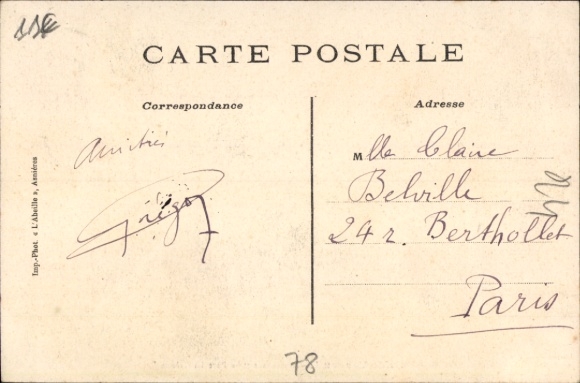 CARTE POSTALE
Correspondance
Adresse
Amitiés
Mlle Claire
Belville
24 r. Berthollet
Paris
Imp.-Phot. « L'Abeille », Asnières
78